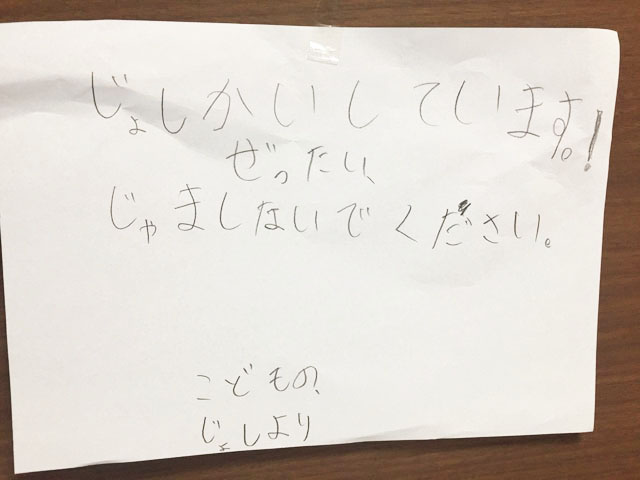 じょしかいしています。!
ぜったい、
じゃましないでください。
こどもの、
じょしより